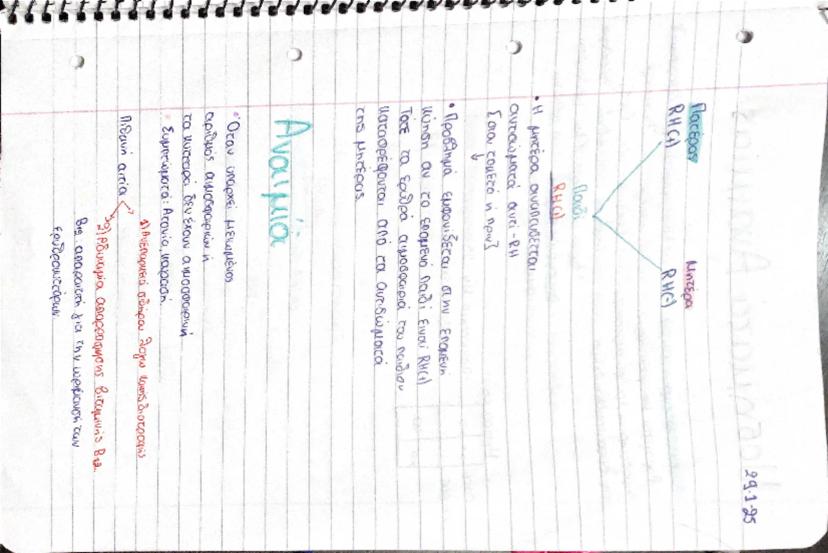 29-1-25
Πατέρας Μητέρα
RH(+) RH(-)
Παιδί
RH(+)
• Η μητέρα αναπτύσσεται
αντισώματα αντι-RH
• Προβλημά εμφανίδεται στην επόμενη
κύηση αν το επομενο παιδί ειναι RH(+)
Τότε τα ερυθρά αιμοσφαιριά του παιδιου
καταστρέφονται από τα αντισώματα
της μητέρας.
Αναιμία
• Όταν υπαρχει μειωμένος
αριθμός αιμοσφαιρίων ή
τα κύτταρα δεν έχουν αιμοσφαιρινη
• Συμπτώματα: Ατονία, κούραση.
Πιθανή αιτία 1) Ανεπαρκεια σιδηρου λόγω κακης διατροφής
2) Αδυναμία απορρόφησης βιταμινης B12.
B12 απαραιτητη για την ωρίμανση των
ερυθροκυττάρων